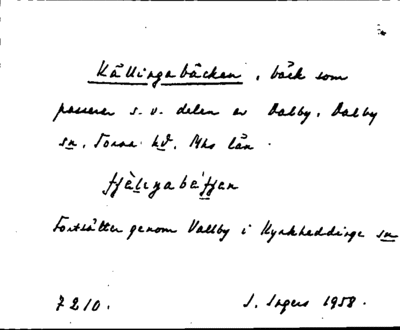 Källingabäcken, bäck som
passerar s.v. delen av Dalby, Dalby
sn, Torna hd, Mhs län.
Fortsätter genom Vallby i Kyrkheddinge sn
7210. J. Sagers 1958.